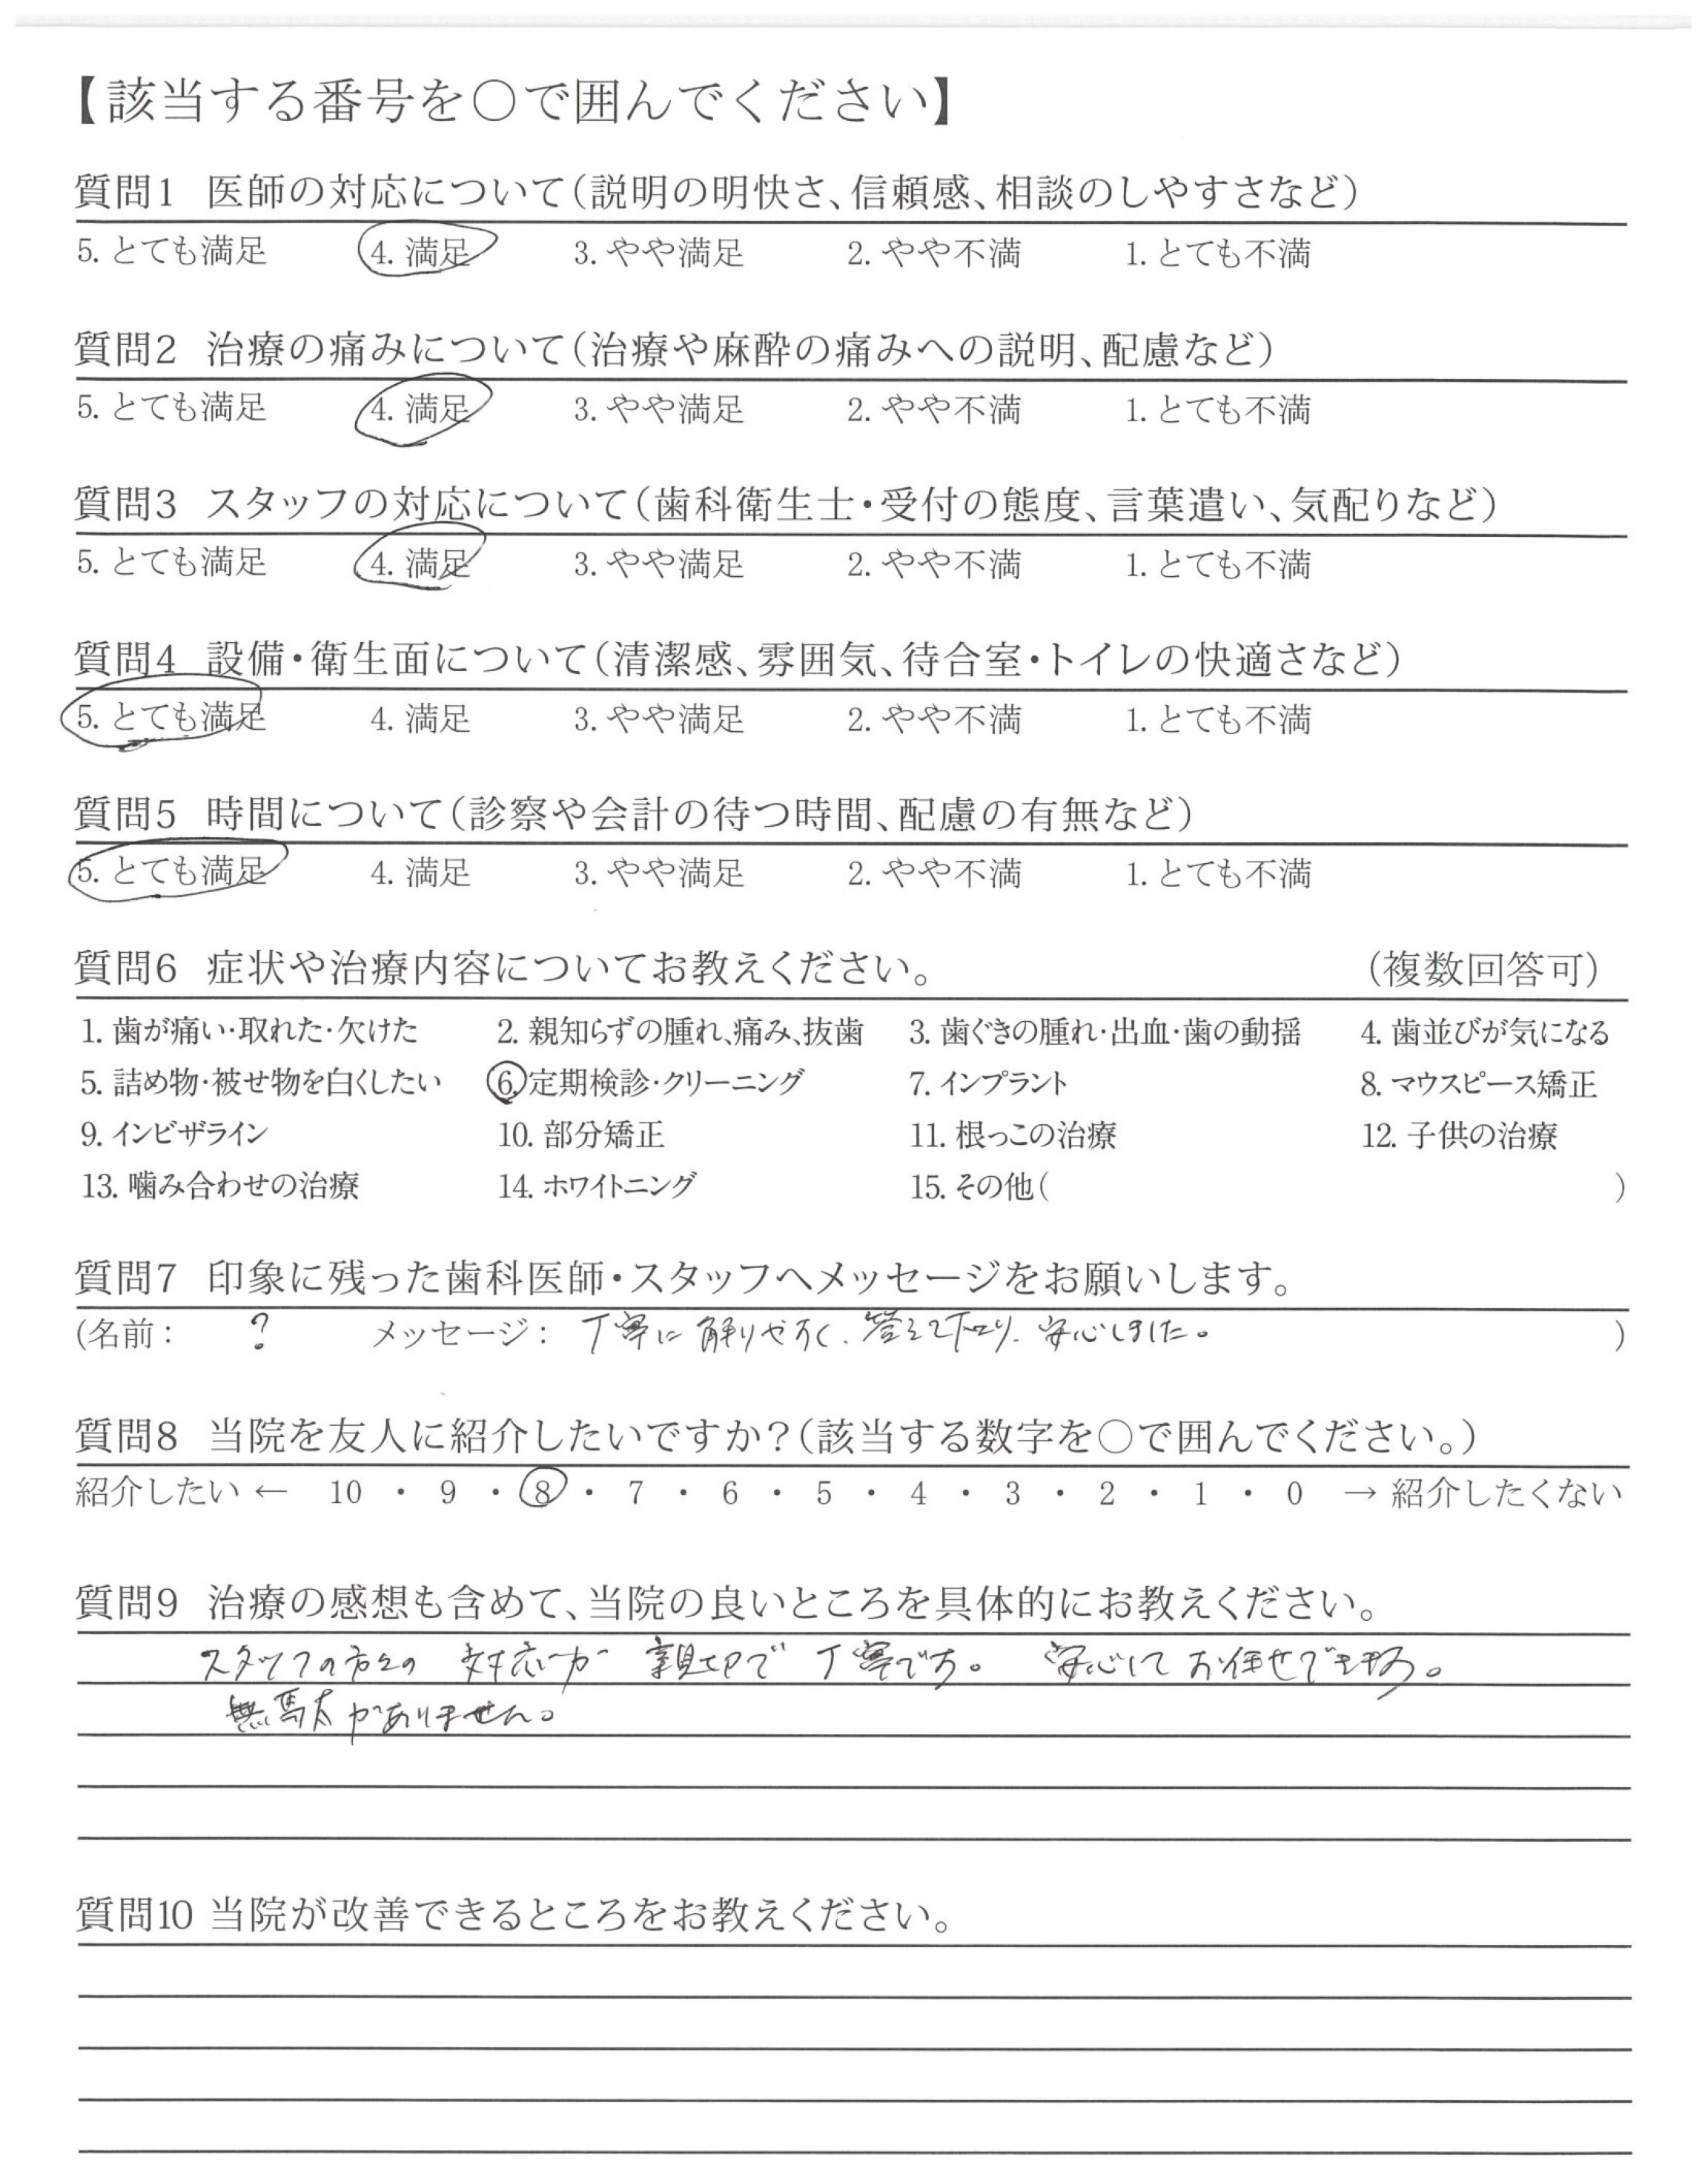 【該当する番号を〇で囲んでください】
質問1 医師の対応について(説明の明快さ、信頼感、相談のしやすさなど)
5. とても満足 4. 満足 3. やや満足 2. やや不満 1. とても不満
質問2 治療の痛みについて(治療や麻酔の痛みへの説明、配慮など)
5. とても満足 4. 満足 3. やや満足 2. やや不満 1. とても不満
質問3 スタッフの対応について(歯科衛生士・受付の態度、言葉遣い、気配りなど)
5. とても満足 4. 満足 3. やや満足 2. やや不満 1. とても不満
質問4 設備・衛生面について(清潔感、雰囲気、待合室・トイレの快適さなど)
5. とても満足 4. 満足 3. やや満足 2. やや不満 1. とても不満
質問5 時間について(診察や会計の待つ時間、配慮の有無など)
5. とても満足 4. 満足 3. やや満足 2. やや不満 1. とても不満
質問6 症状や治療内容についてお教えください。 (複数回答可)
1. 歯が痛い・取れた・欠けた 2. 親知らずの腫れ、痛み、抜歯 3. 歯ぐきの腫れ・出血・歯の動揺 4. 歯並びが気になる
5. 詰め物・被せ物を白くしたい 6. 定期検診・クリーニング 7. インプラント 8. マウスピース矯正
9. インビザライン 10. 部分矯正 11. 根っこの治療 12. 子供の治療
13. 噛み合わせの治療 14. ホワイトニング 15. その他( )
質問7 印象に残った歯科医師・スタッフへメッセージをお願いします。
(名前: ? メッセージ: 丁寧に解りやすく、答えて下さり、安心しました。 )
質問8 当院を友人に紹介したいですか?(該当する数字を〇で囲んでください。)
紹介したい ← 10 ・ 9 ・ 8 ・ 7 ・ 6 ・ 5 ・ 4 ・ 3 ・ 2 ・ 1 ・ 0 → 紹介したくない
質問9 治療の感想も含めて、当院の良いところを具体的にお教えください。
スタッフの方々の対応が親切で丁寧です。 安心してお任せできます。
無駄がありません。
質問10 当院が改善できるところをお教えください。